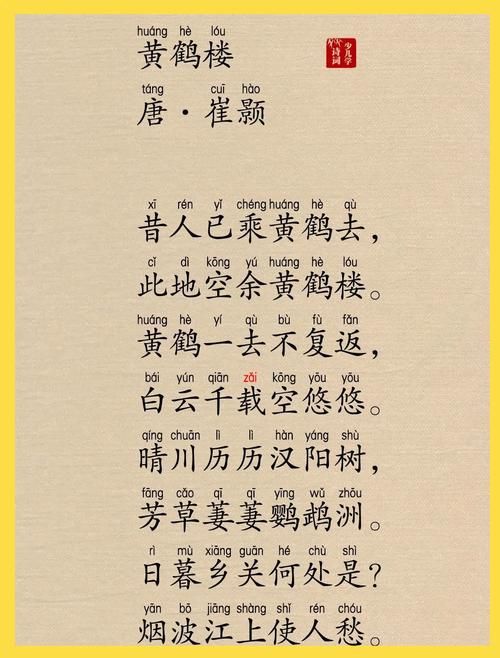 huáng hè lóu
黄鹤楼
少儿学
诗词
táng cuī hào
唐·崔颢
xī rén yǐ chéng huáng hè qù
昔人已乘黄鹤去，
cǐ dì kōng yú huáng hè lóu
此地空余黄鹤楼。
huáng hè yí qù bù fù fǎn
黄鹤一去不复返，
bái yún qiān zǎi kōng yōu yōu
白云千载空悠悠。
qíng chuān lì lì hàn yáng shù
晴川历历汉阳树，
fāng cǎo qī qī yīng wǔ zhōu
芳草萋萋鹦鹉洲。
rì mù xiāng guān hé chù shì
日暮乡关何处是？
yān bō jiāng shàng shǐ rén chóu
烟波江上使人愁。